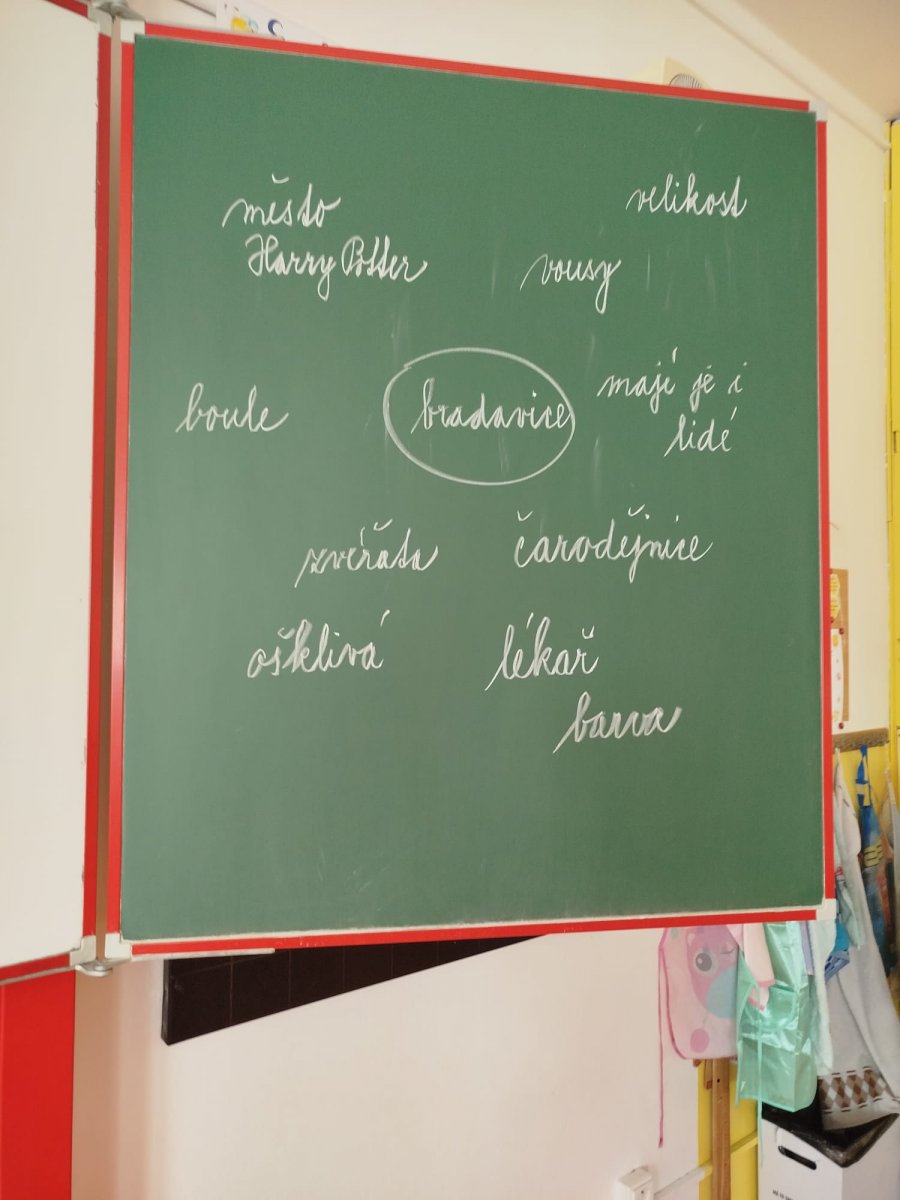 město
Harry Potter
velikost
vousy
boule
bradavice
mají je i
lidé
zvířata
čarodějnice
ošklivá
lékař
barva